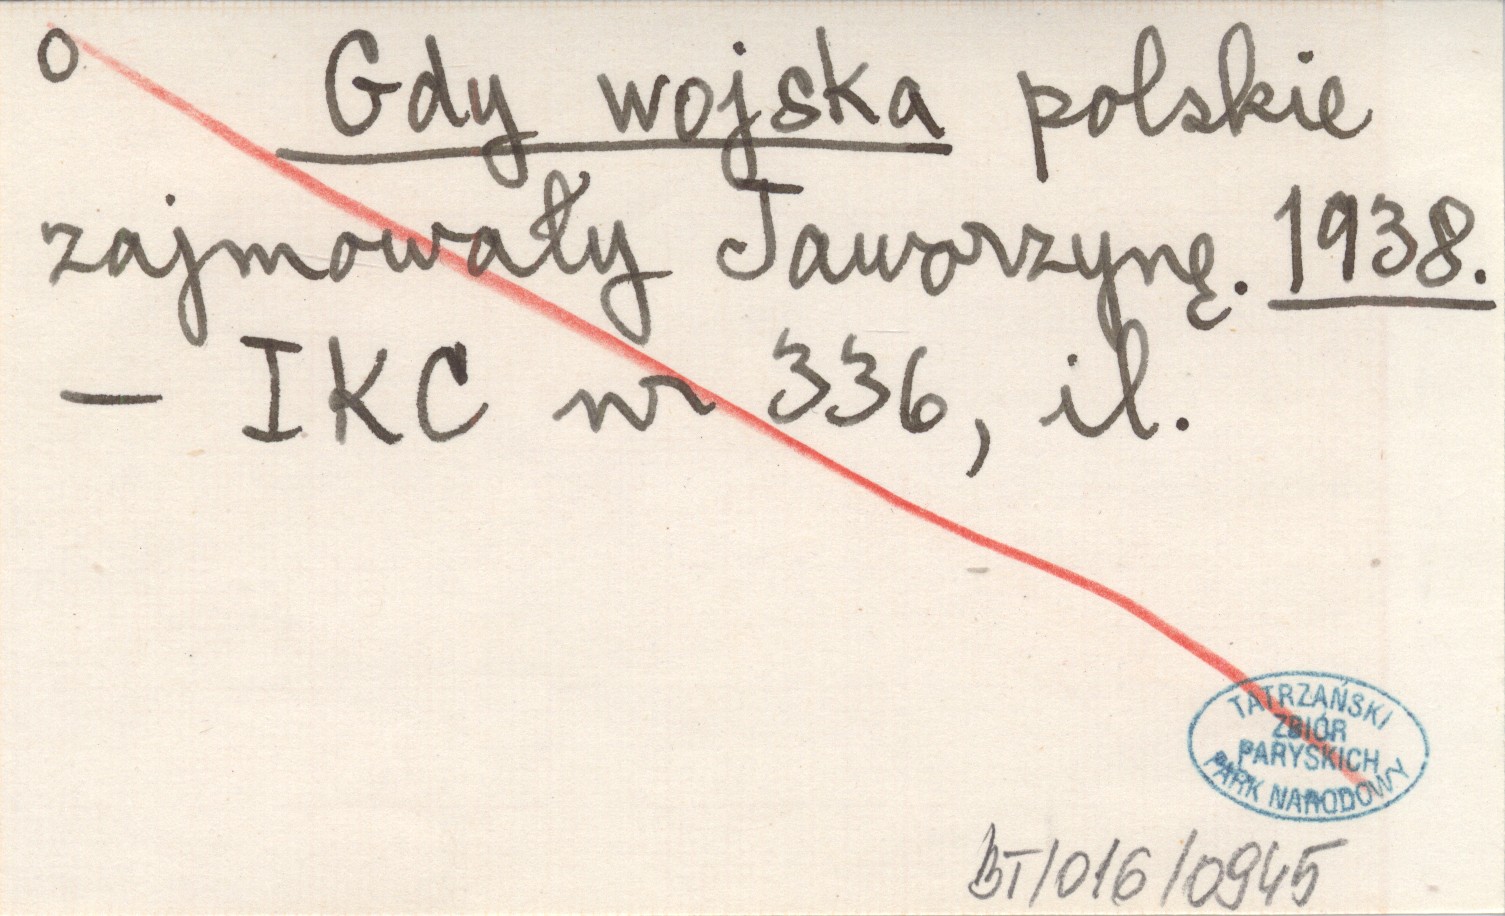 o Gdy wojska polskie
zajmowały Jaworzynę. 1938.
— IKC nr 336, il.
TATRZAŃSKI
ZBIÓR
PARYSKICH
PARK NARODOWY
BT/016/0945